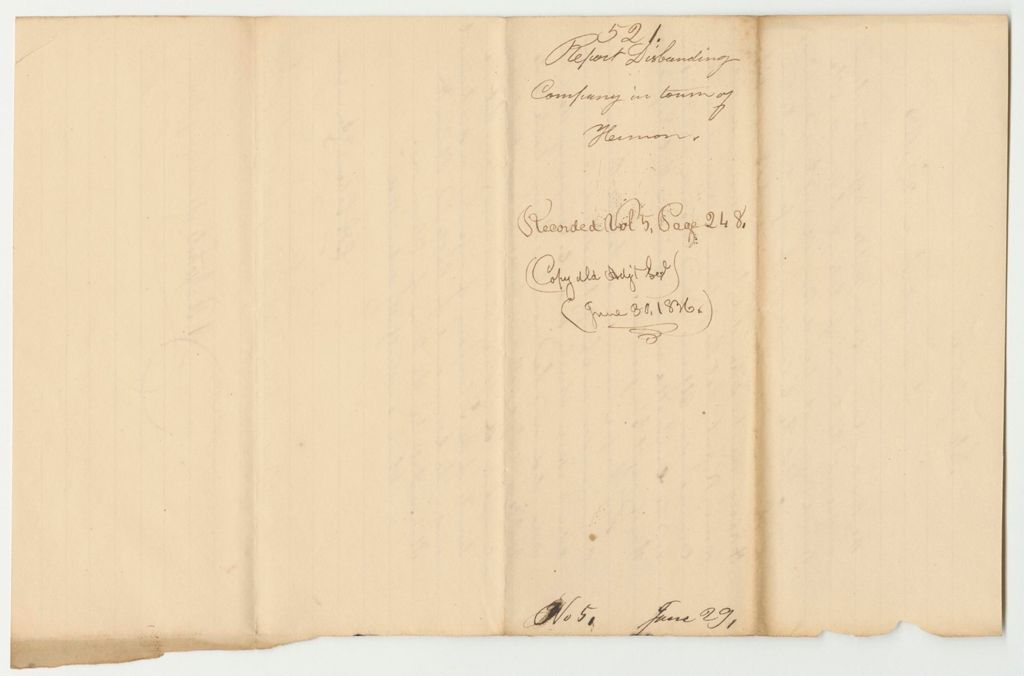 521.
Report Disbanding
Company in town of
Hermon.
Recorded Vol 5, Page 248.
(Copy dld Adjt Genl)
(June 30, 1836.)
No 5. June 29,